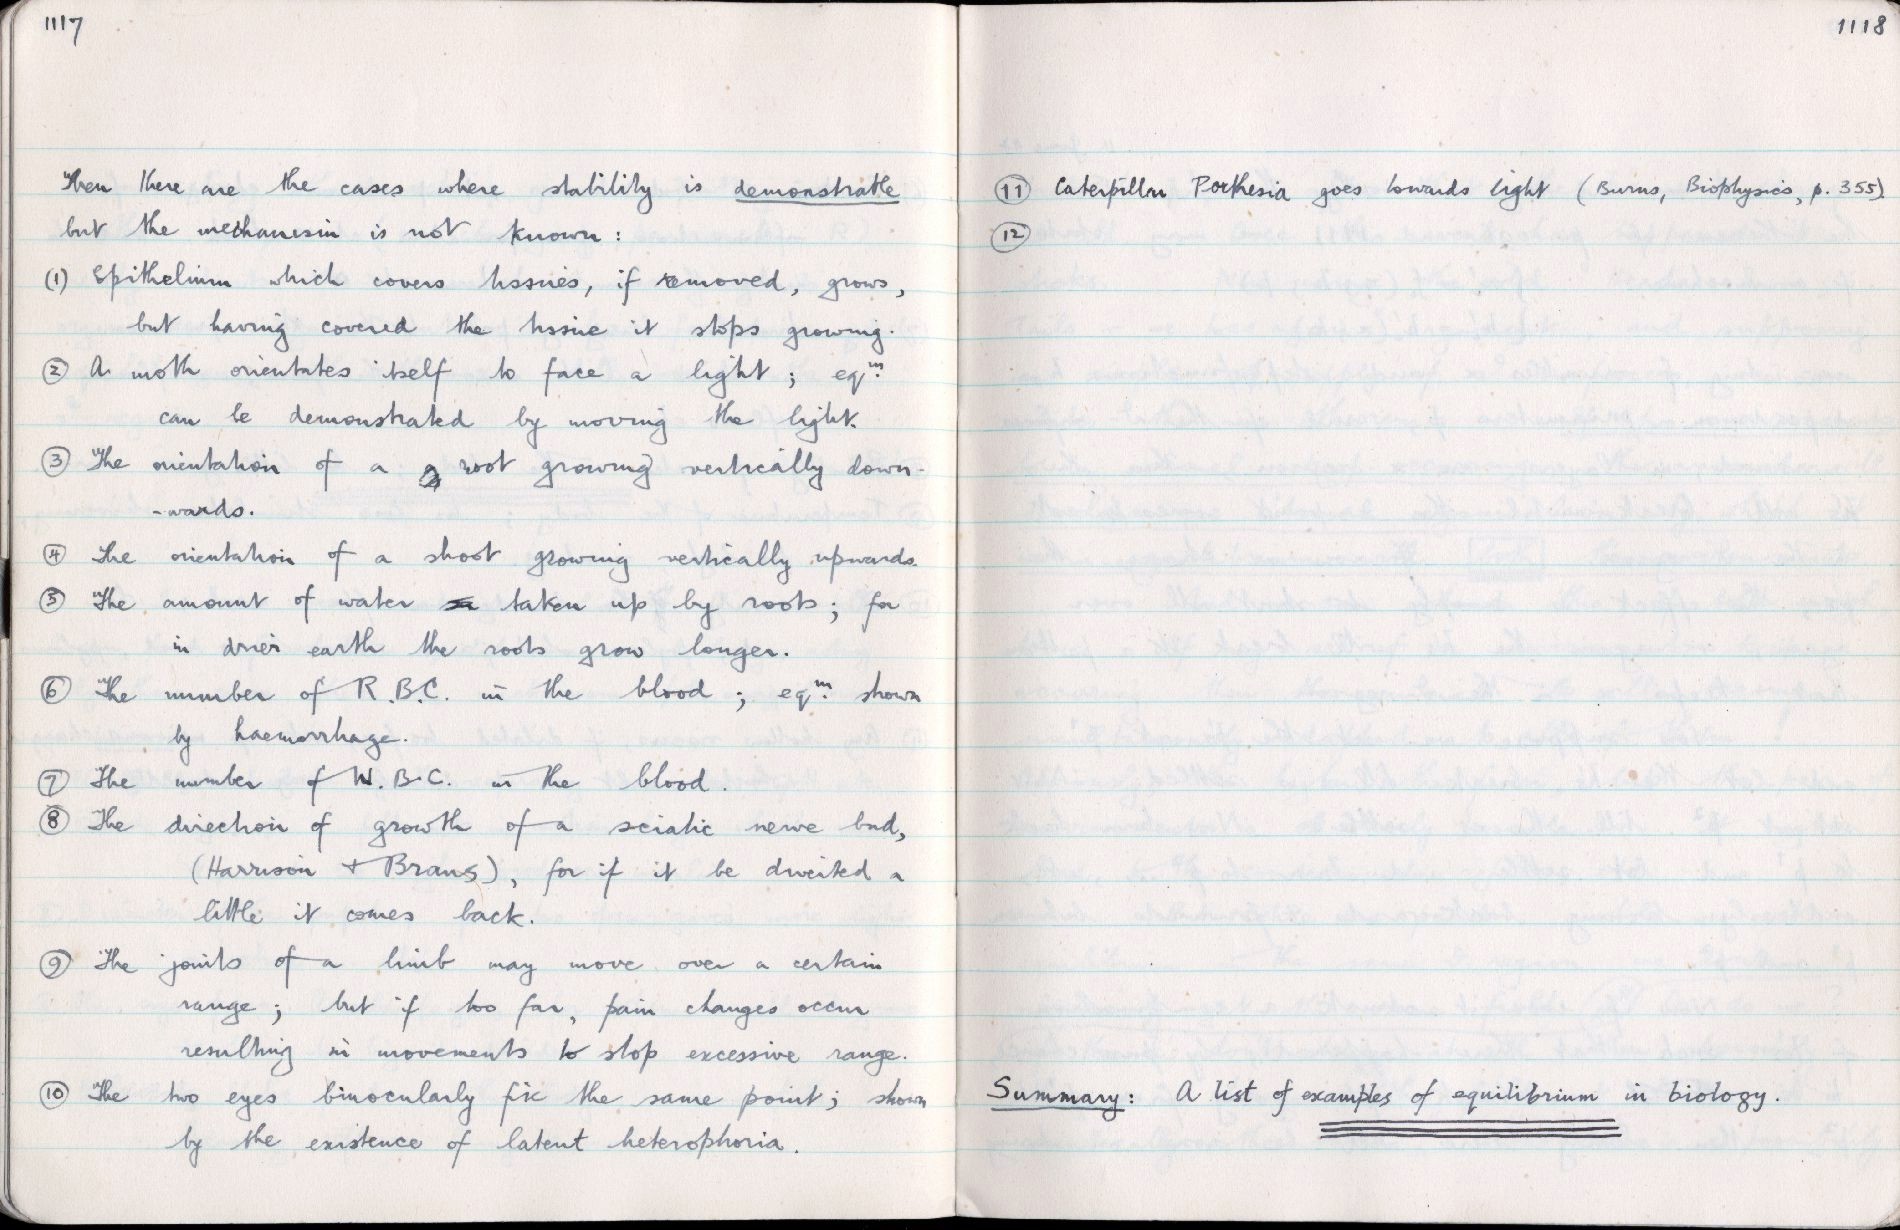 1117
Then there are the cases where stability is demonstrable
but the mechanism is not known:
(1) Epithelium which covers tissues, if removed, grows,
but having covered the tissue it stops growing.
(2) A moth orientates itself to face a light; eqm.
can be demonstrated by moving the light.
(3) The orientation of a root growing vertically down-
-wards.
(4) The orientation of a shoot growing vertically upwards.
(5) The amount of water taken up by roots; for
in drier earth the roots grow longer.
(6) The number of R.B.C. in the blood; eqm. shown
by haemorrhage.
(7) The number of W.B.C. in the blood.
(8) The direction of growth of a sciatic nerve bud,
(Harrison + Braus), for if it be diverted a
little it comes back.
(9) The joints of a limb may move over a certain
range; but if too far, pain changes occur
resulting in movements to stop excessive range.
(10) The two eyes binocularly fix the same point; shown
by the existence of latent heterophoria.
1118
(11) Caterpillar Porthesia goes towards light (Burns, Biophysics, p. 355).
(12)
Summary: A list of examples of equilibrium in biology.